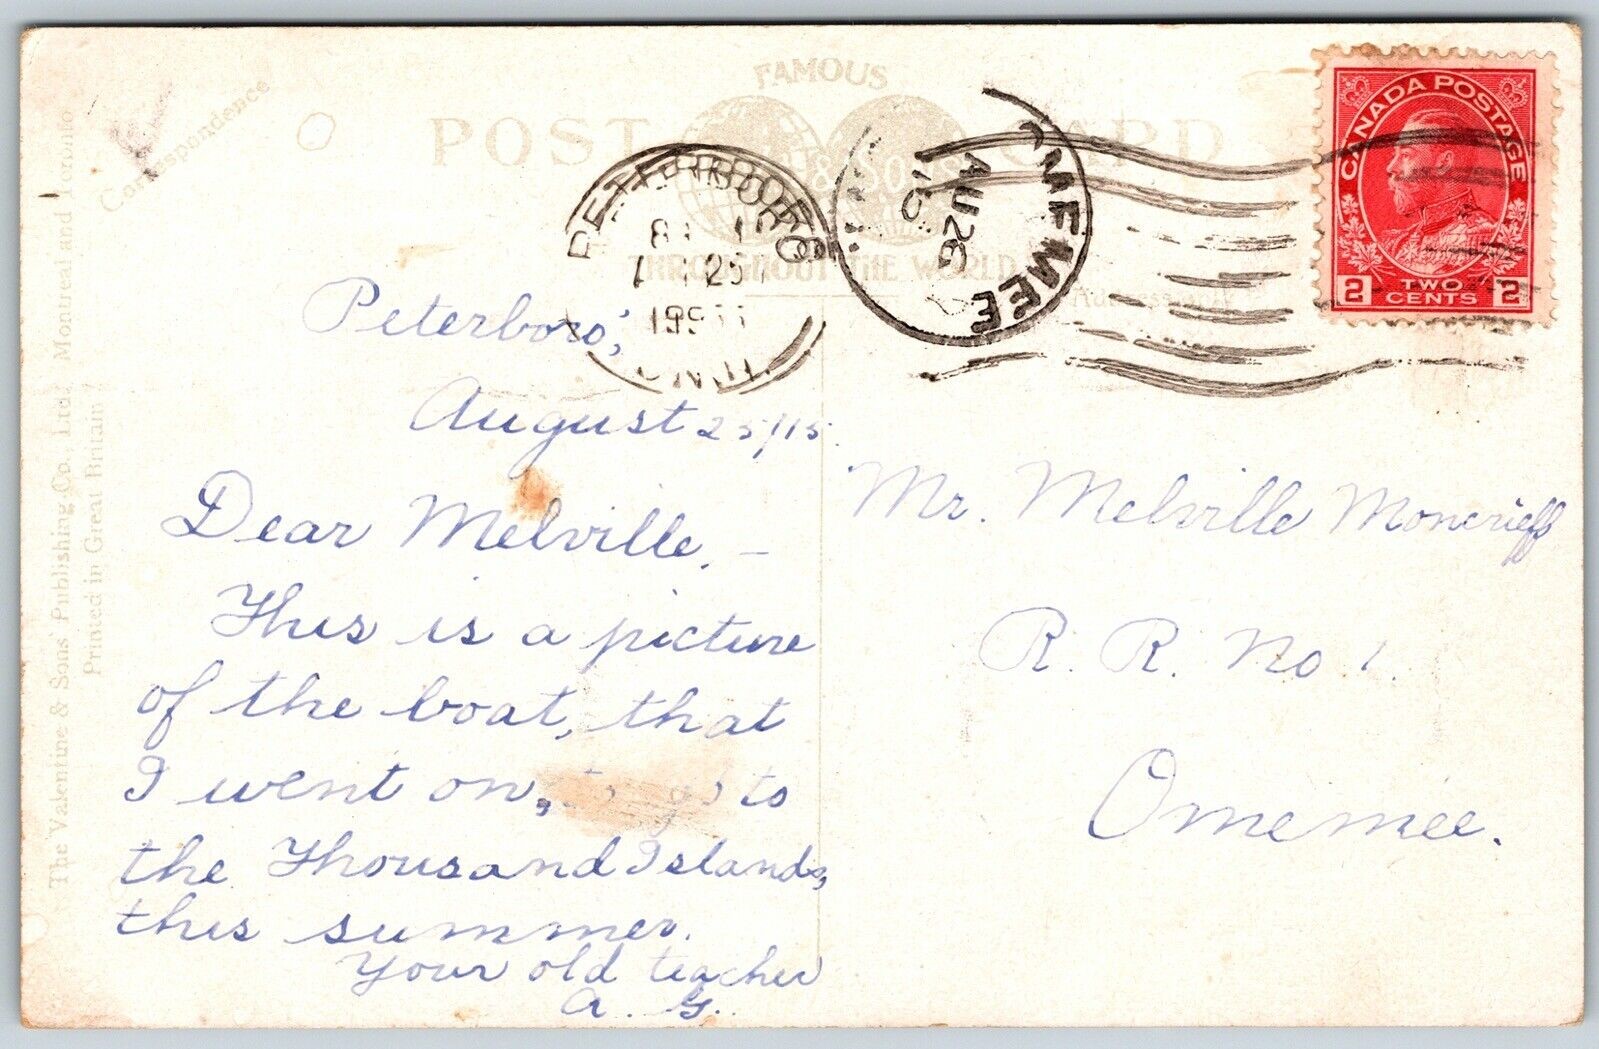 FAMOUS
POST CARD
& SONS
THROUGHOUT THE WORLD
Correspondence
The Valentine & Sons' Publishing Co., Ltd. Montreal and Toronto
Printed in Great Britain
PETERBORO
25
ONT.
AU 26
15
CANADA POSTAGE
2 TWO CENTS 2
Peterboro,
August 25/15.
Dear Melville, –
This is a picture
of the boat, that
I went on, to
the Thousand Islands,
this summer.
Your old teacher
A. G.
Mr. Melville Moncrieff
R. R. No 1.
Omemee.